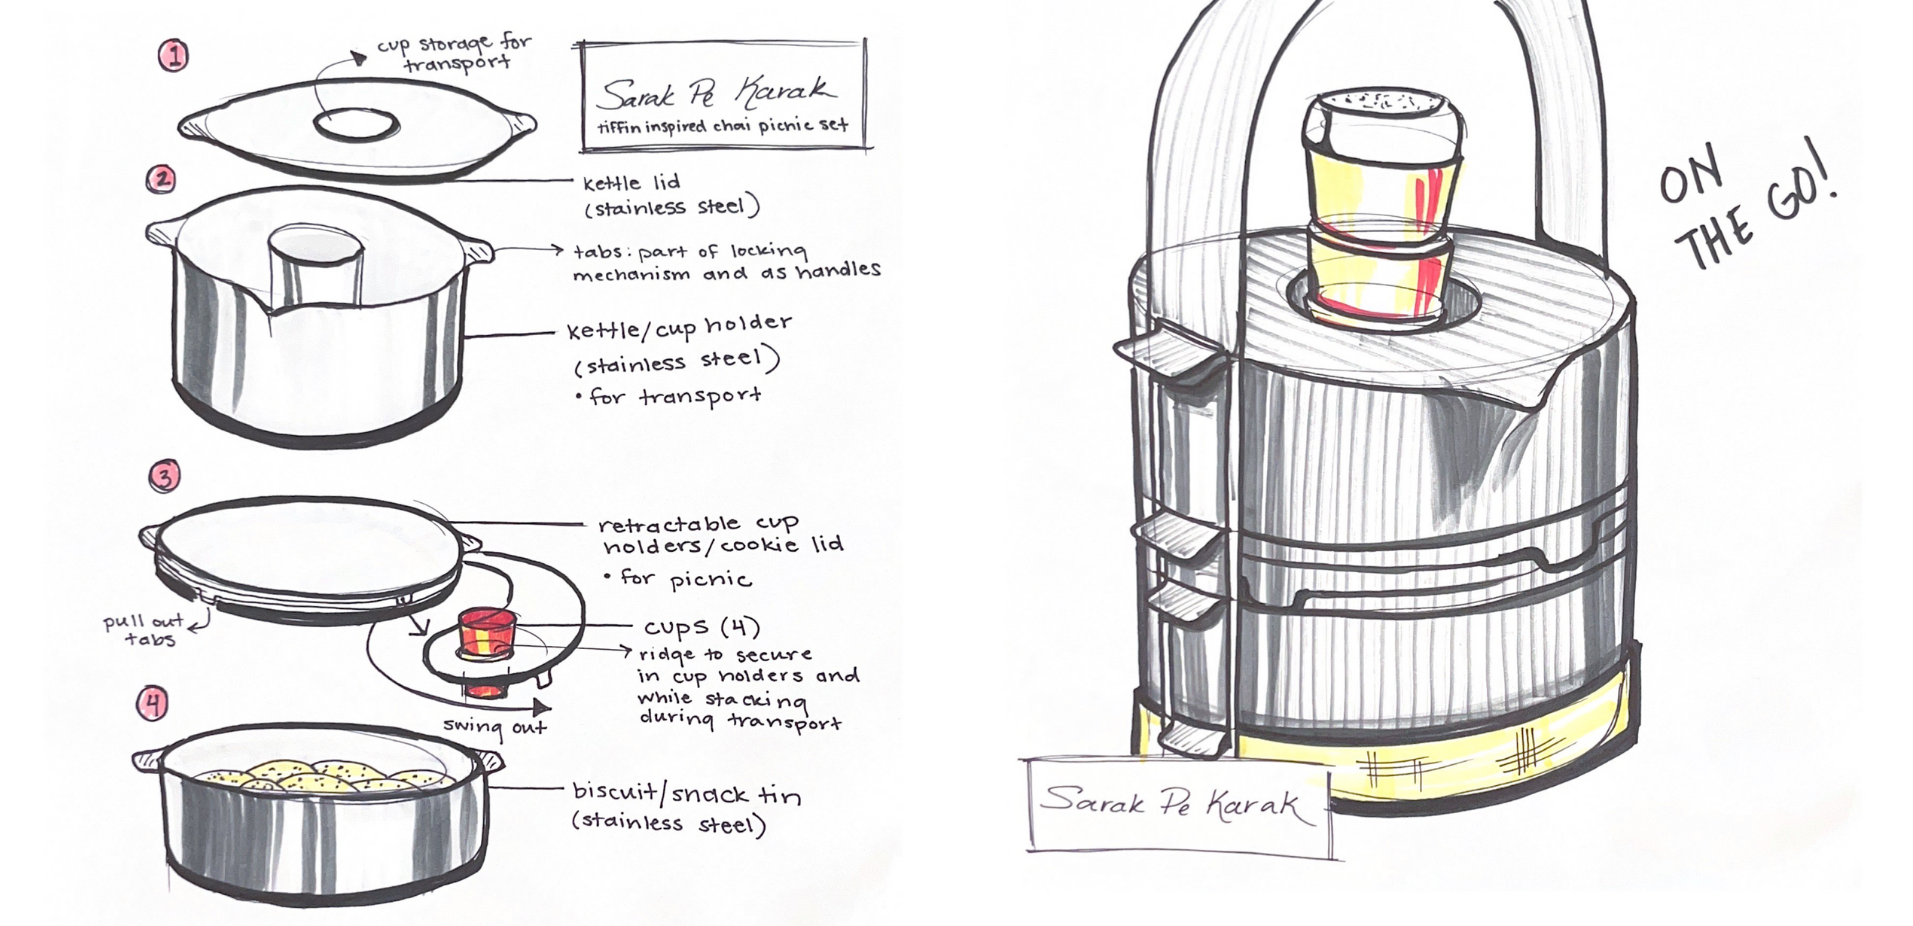 1
cup storage for
transport
Sarak Pe Karak
tiffin inspired chai picnic set
kettle lid
(stainless steel)
2
tabs: part of locking
mechanism and as handles
kettle/cup holder
(stainless steel)
• for transport
3
retractable cup
holders/cookie lid
• for picnic
pull out
tabs
cups (4)
ridge to secure
in cup holders and
while stacking
during transport
swing out
4
biscuit/snack tin
(stainless steel)
ON
THE GO!
Sarak Pe Karak